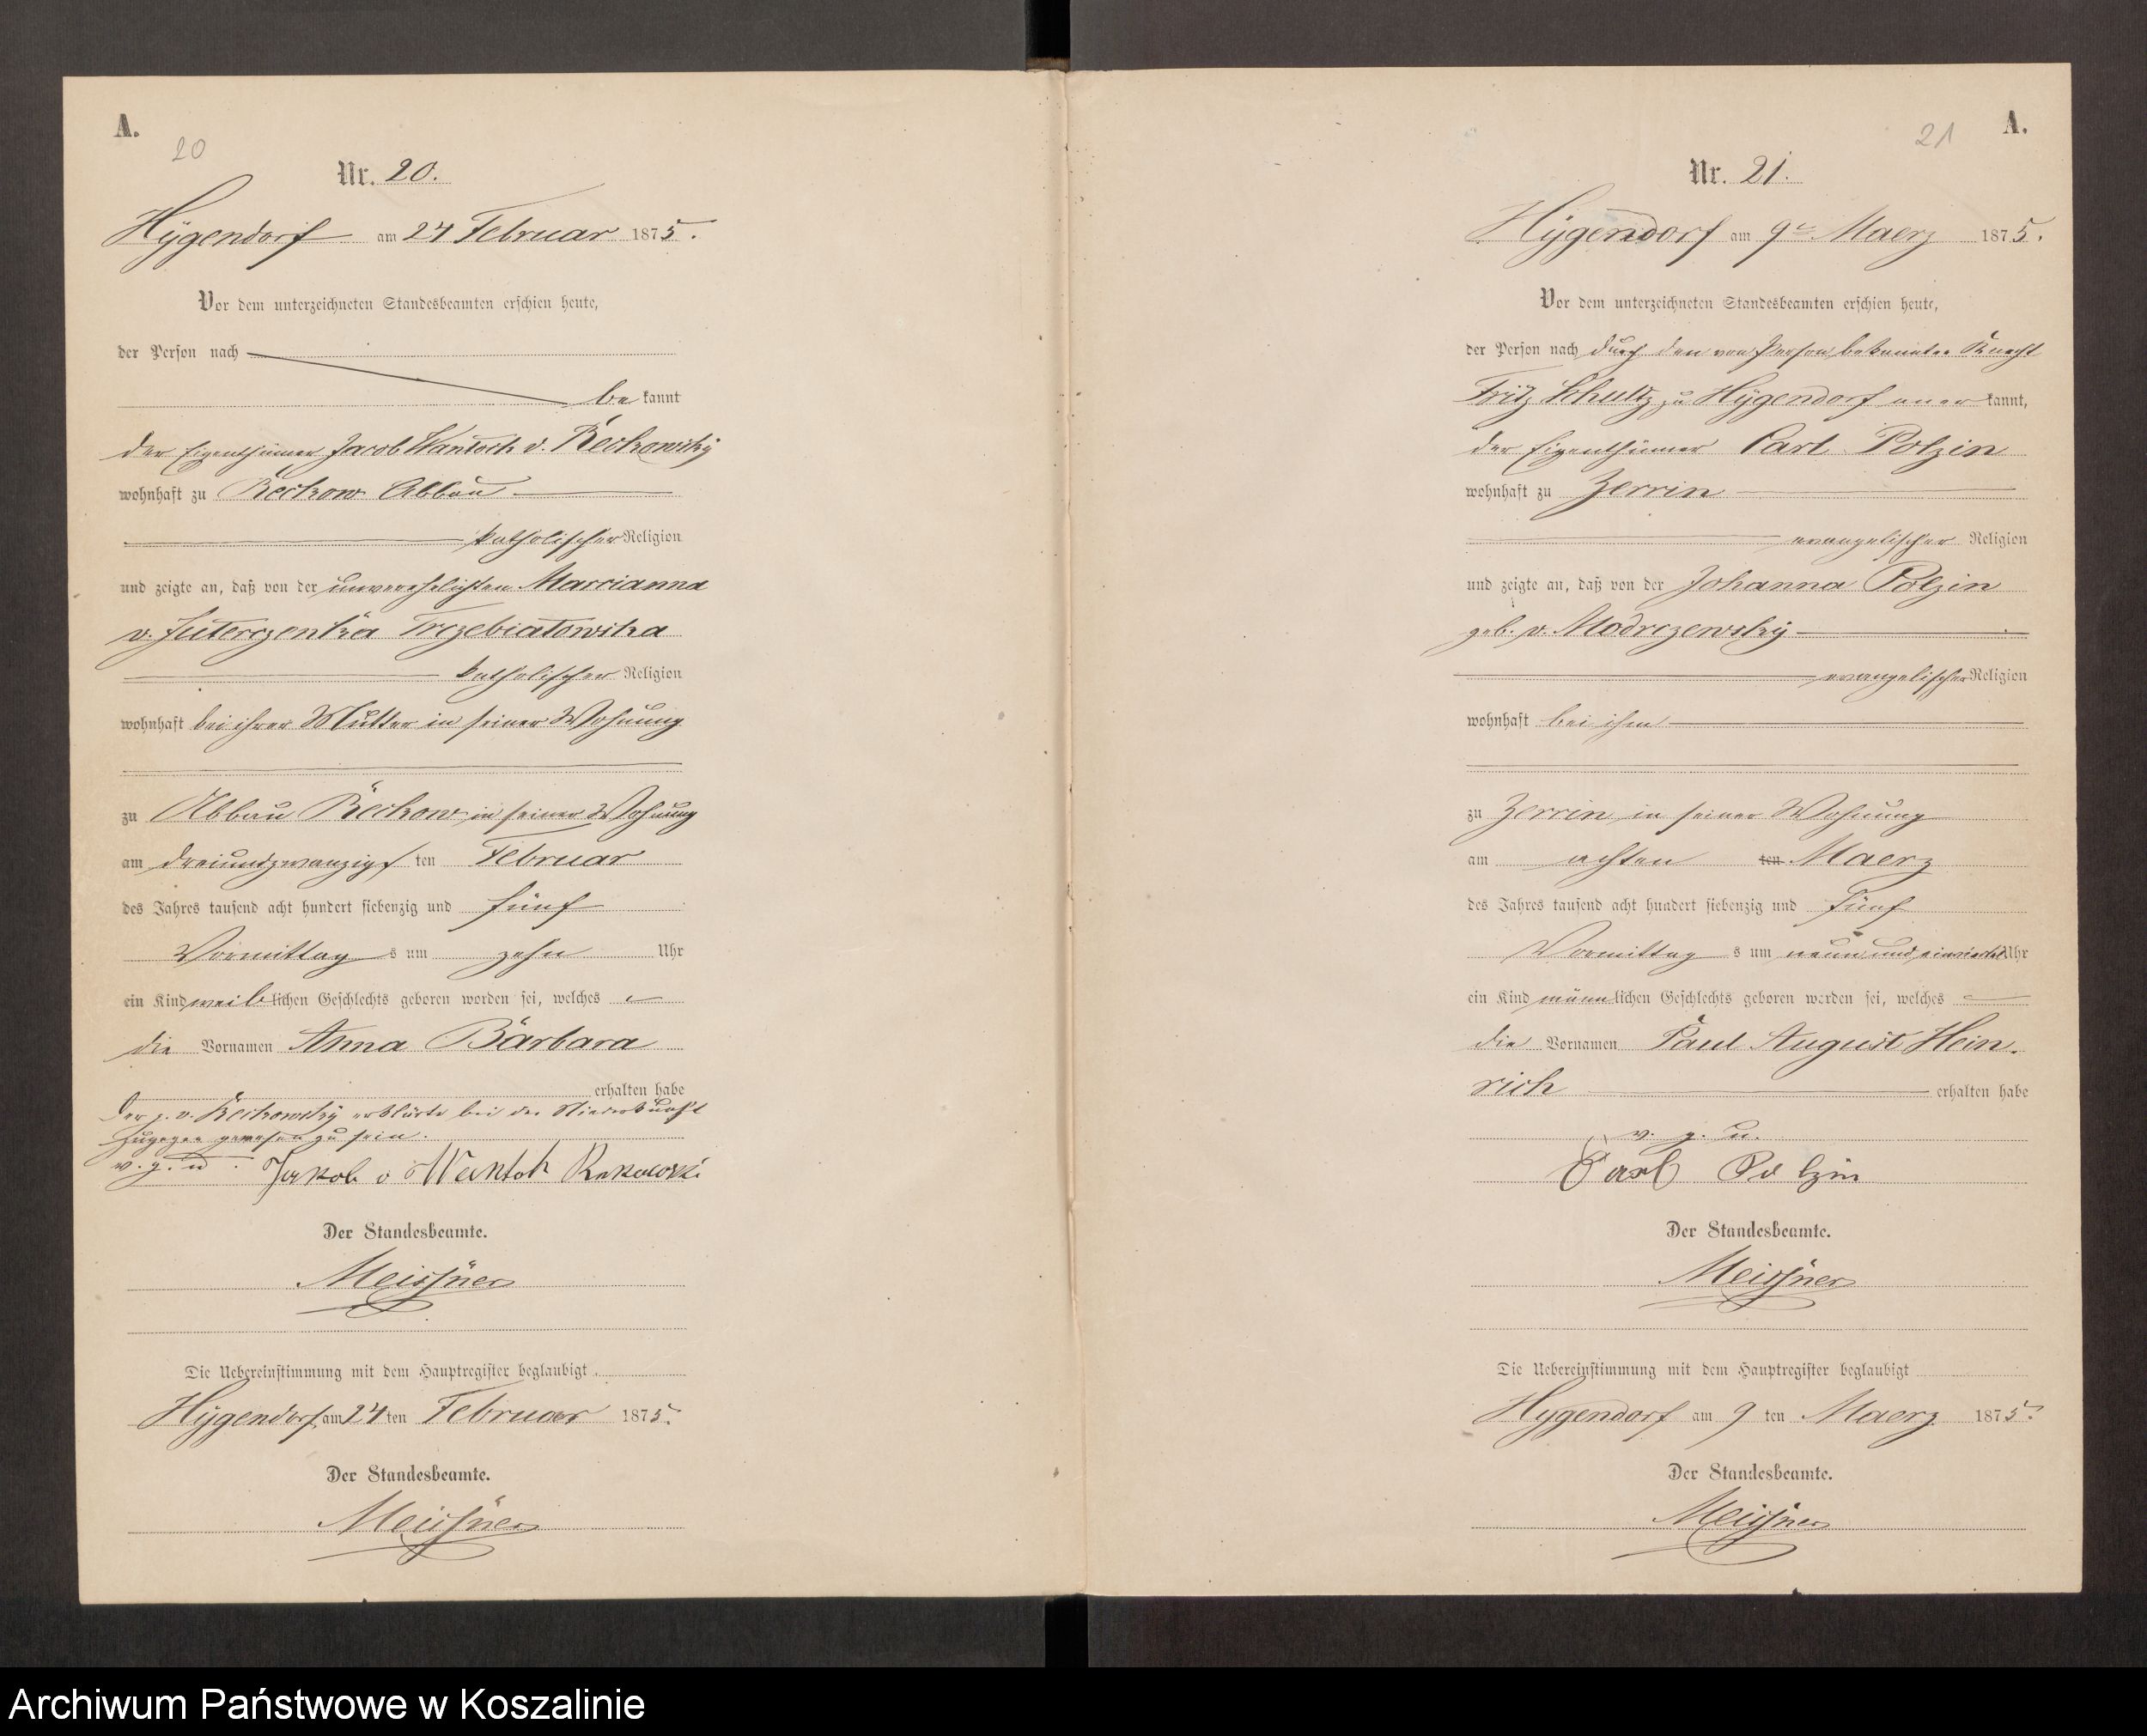 A.
20
Nr. 20.
Hÿgendorf am 24 Februar 1875.
Vor dem unterzeichneten Standesbeamten erschien heute,
der Person nach
be kannt
der Eigenthümer Jacob Wantoch v. Reckowsky
wohnhaft zu Reckow Abbau
katholischer Religion
und zeigte an, daß von der unverehelichten Marcianna
v. Juterczenka Trzebiatowska
katholischer Religion
wohnhaft bei ihrer Mutter in seiner Wohnung
zu Abbau Reckow in seiner Wohnung
am dreiundzwanzigsten Februar
des Jahres tausend acht hundert siebenzig und fünf
Vormittags um zehn Uhr
ein Kind weiblichen Geschlechts geboren worden sei, welches
die Vornamen Anna Barbara
erhalten habe
Der p. v. Reckowsky erklärte bei der Niederkunft
zugegen gewesen zu sein.
v. g. u. Jakob v Wantoh Rekowski
Der Standesbeamte.
Meissner
Die Uebereinstimmung mit dem Hauptregister beglaubigt
Hÿgendorf am 24ten Februar 1875.
Der Standesbeamte.
Meissner
21
A.
Nr. 21.
Hÿgendorf am 9te Maerz 1875.
Vor dem unterzeichneten Standesbeamten erschien heute,
der Person nach durch den von Person bekannten Knecht
Fritz Schultz zu Hÿgendorf aner kannt,
der Eigenthümer Carl Polzin
wohnhaft zu Zerrin
evangelischer Religion
und zeigte an, daß von der Johanna Polzin
geb. v. Modrczewsky
evangelischer Religion
wohnhaft bei ihm
zu Zerrin in seiner Wohnung
am achten ten Maerz
des Jahres tausend acht hundert siebenzig und fünf
Vormittags um neun und einviertel Uhr
ein Kind männlichen Geschlechts geboren worden sei, welches
die Vornamen Paul August Hein-
rich erhalten habe
v. g. u.
Carl Polzin
Der Standesbeamte.
Meissner
Die Uebereinstimmung mit dem Hauptregister beglaubigt
Hygendorf am 9 ten Maerz 1875.
Der Standesbeamte.
Meissner
Archiwum Państwowe w Koszalinie